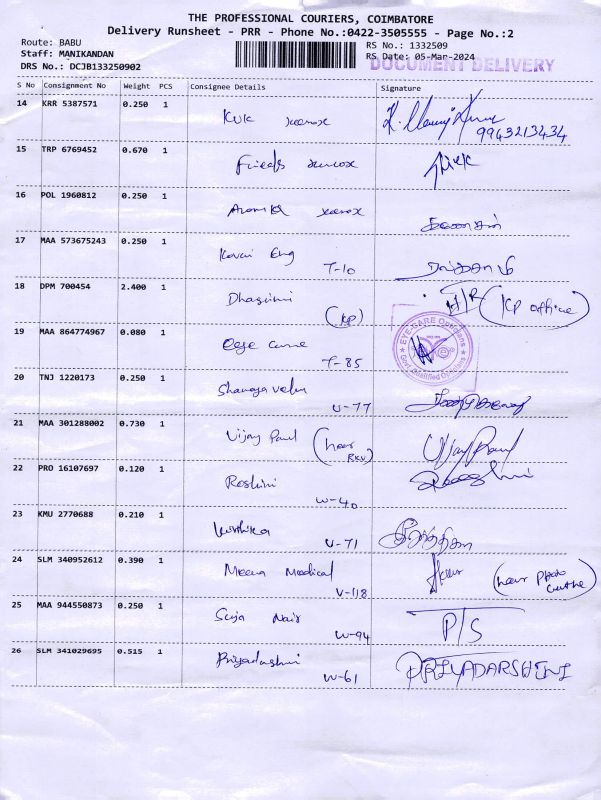 THE PROFESSIONAL COURIERS, COIMBATORE
Delivery Runsheet - PRR - Phone No.:0422-3505555 - Page No.:2
Route: BABU
Staff: MANIKANDAN
DRS No.: DCJB133250902
RS No.: 1332509
RS Date: 05-Mar-2024
DOCUMENT DELIVERY
S No Consignment No Weight PCS Consignee Details Signature
14 KRR 5387571 0.250 1
9943213434
15 TRP 6769452 0.670 1
16 POL 1960812 0.250 1 xerox
17 MAA 573675243 0.250 1 Kovai Eng T-10
18 DPM 700454 2.400 1 Dhasini (KP) H/R (KP office)
19 MAA 864774967 0.080 1 T-85
EYE-CARE Opticians
Govt. Qualified Opticians
20 TNJ 1220173 0.250 1 Shanagavelu U-77
21 MAA 301288002 0.730 1 Vijay Paul (near Vijay Paul
22 PRO 16107697 0.120 1 Roshini W-40
23 KMU 2770688 0.210 1 V-71
24 SLM 340952612 0.390 1 Meena Medical V-118 (near Photo
25 MAA 944550873 0.250 1 Suja Nair W-94 P/S
26 SLM 341029695 0.515 1 Priyadarshni W-61 PRIYADARSHINI